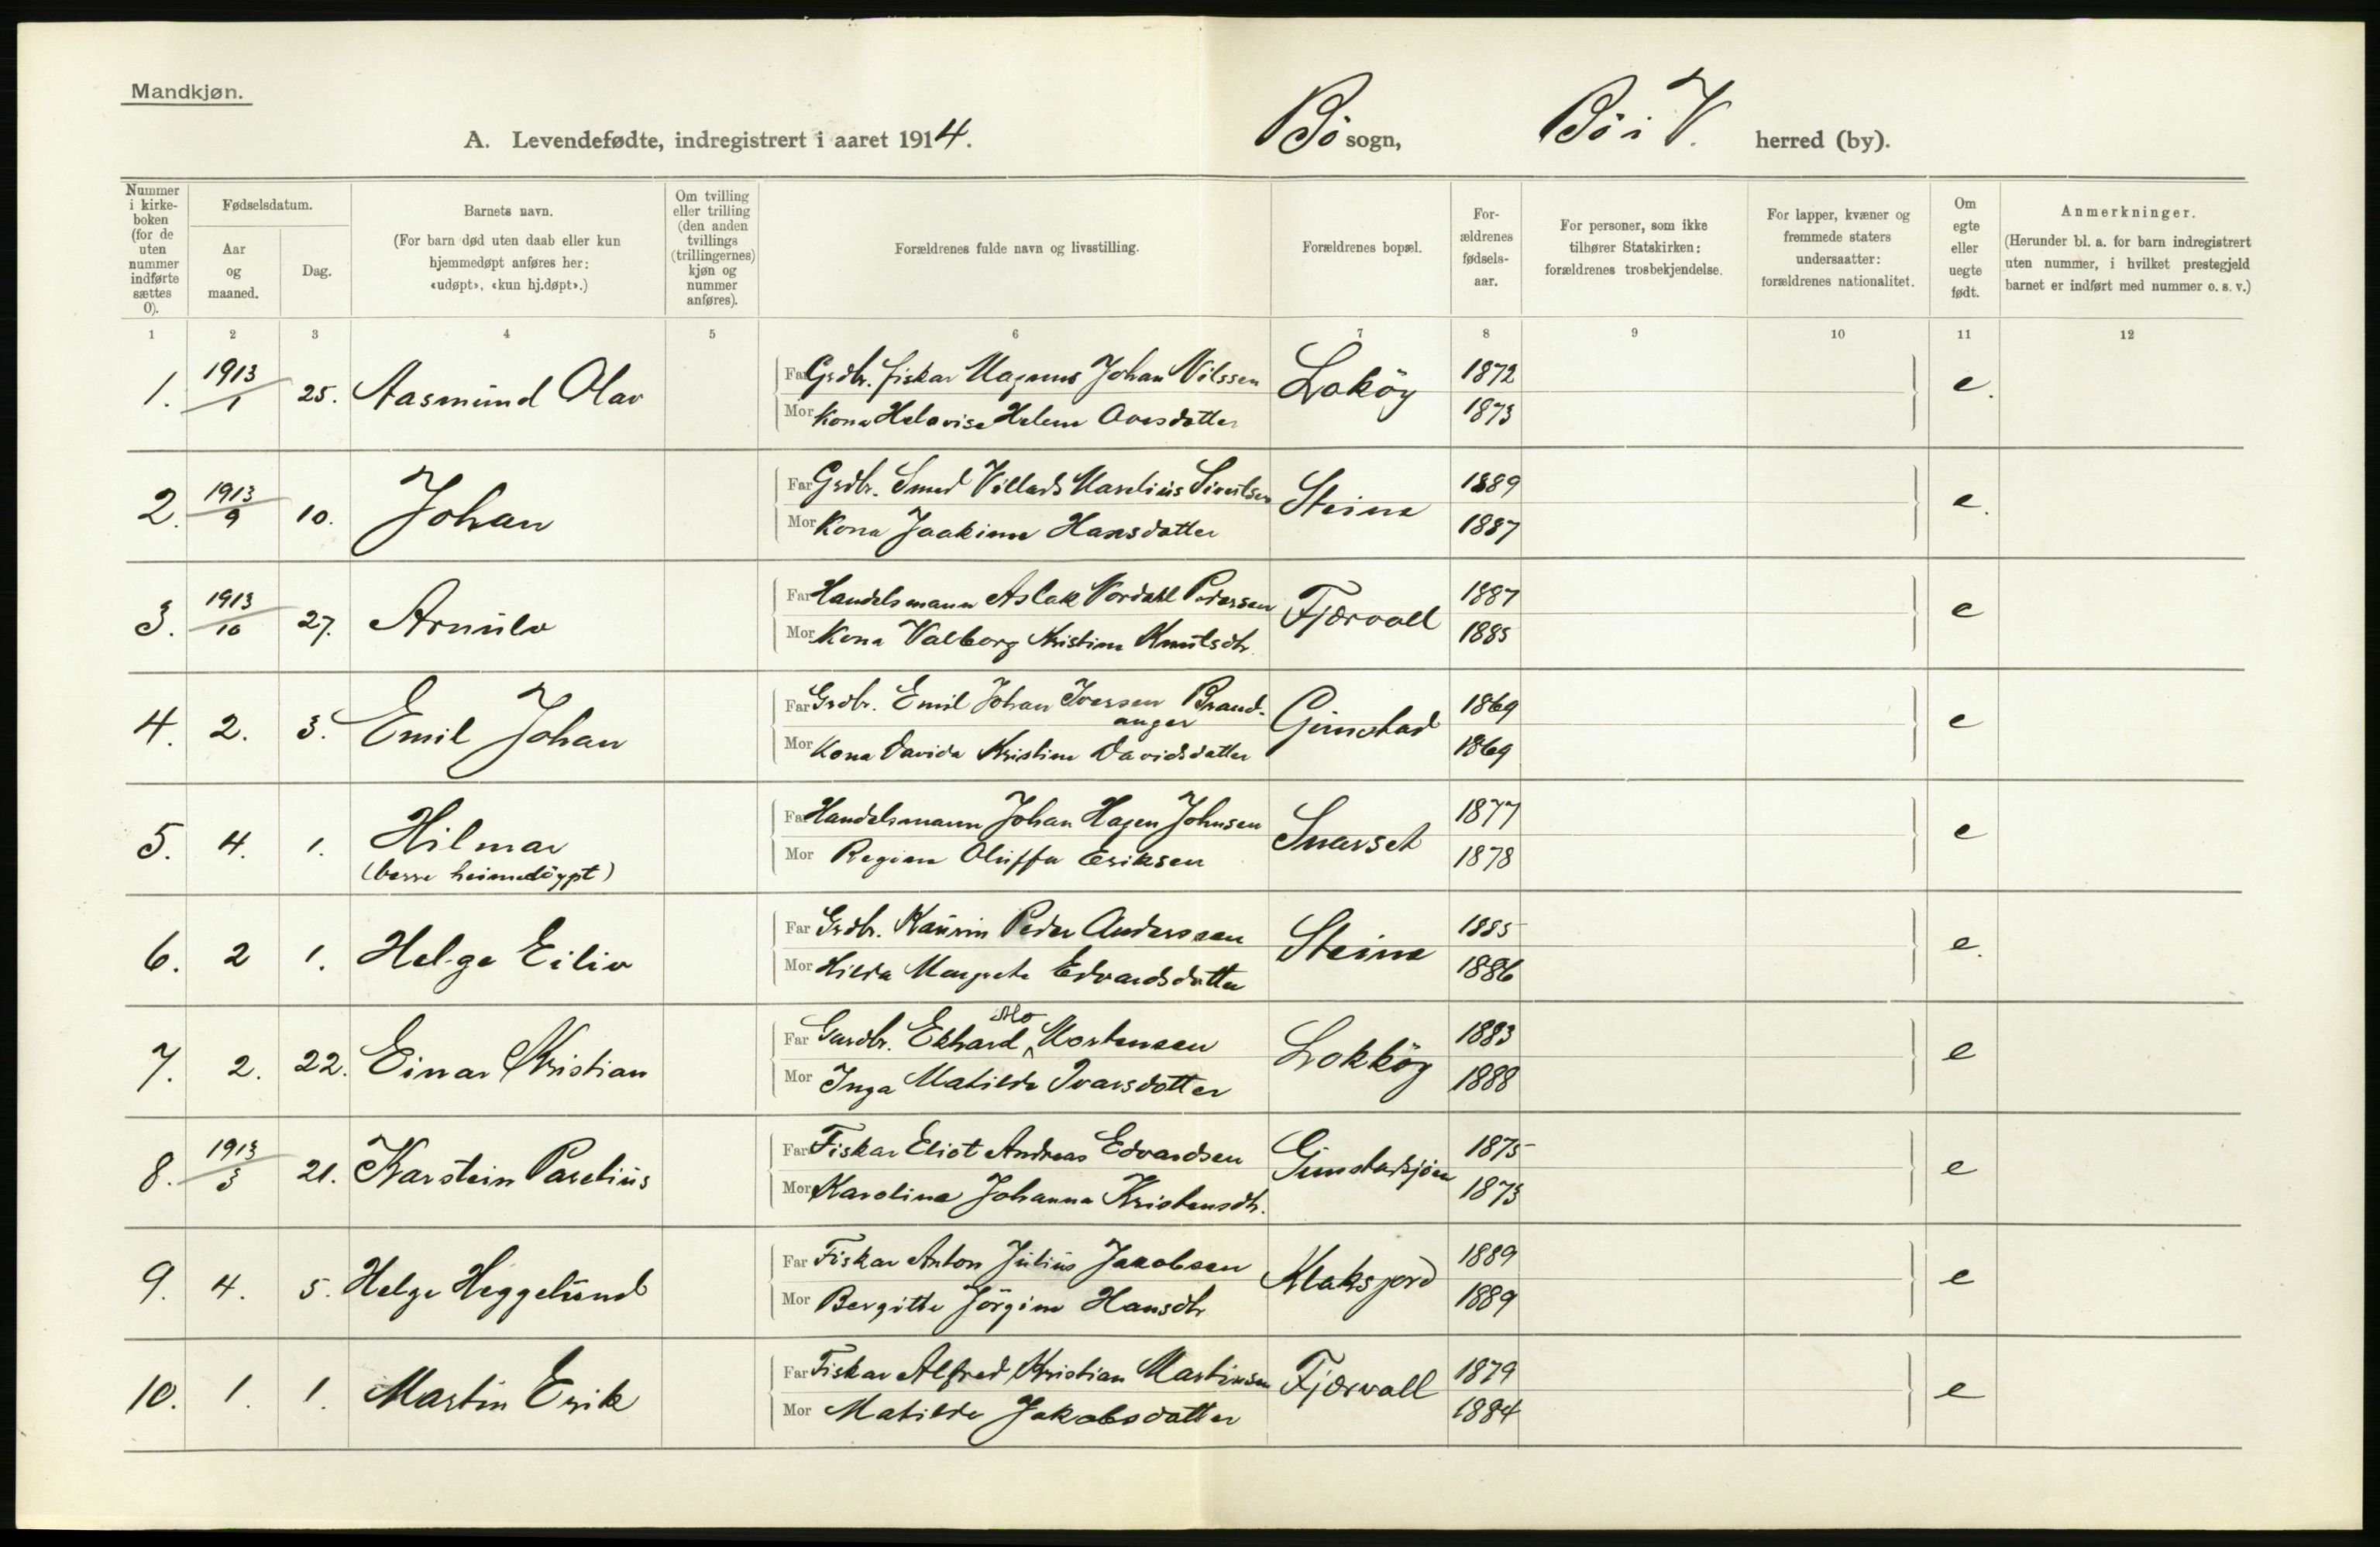 Mandkjøn.
A. Levendefødte, indregistrert i aaret 1914. Bö sogn, Bö i V. herred (by).
Nummer i kirke-boken (for de uten nummer indførte sættes 0).
Fødselsdatum.
Aar og maaned.
Dag.
Barnets navn.
(For barn død uten daab eller kun hjemmedøpt anføres her: «udøpt», «kun hj.døpt».)
Om tvilling eller trilling (den anden tvillings (trillingernes) kjøn og nummer anføres).
Forældrenes fulde navn og livsstilling.
Forældrenes bopæl.
For-ældrenes fødsels-aar.
For personer, som ikke tilhører Statskirken: forældrenes trosbekjendelse.
For lapper, kvæner og fremmede staters undersaatter: forældrenes nationalitet.
Om egte eller uegte født.
Anmerkninger.
(Herunder bl. a. for barn indregistrert uten nummer, i hvilket prestegjeld barnet er indført med nummer o. s. v.)
1 2 3 4 5 6 7 8 9 10 11 12
1. 1913/1 25. Aasmund Olav Far Grdbr. fiskar Magnus Johan Nilssen Loköy 1872 e.
Mor Kona Helovise Helene Ovesdotter 1873
2. 1913/9 10. Johan Far Grdbr. Smed Villads Marelius Sivertsen Steine 1889 e.
Mor Kona Joakime Hansdotter 1887
3. 1913/10 27. Arnulv Far Handelsmann Aslak Nordahl Pedersen Fjærvoll 1887 e
Mor Kona Valborg Kristine Knutsdtr. 1885
4. 2. 3. Emil Johan Far Grdbr. Emil Johan Iversen Brand-anger Gimstad 1869 e
Mor Kona Davida Kristine Davidsdatter 1869
5. 4. 1. Hilmar Far Handelsmann Johan Hagen Johnsen Snarset 1877 e
(berre heimedöypt) Mor Regine Oluffa Eriksen 1878
6. 2 1. Helge Eiliv Far Grdbr. Kaurin Peder Anderssen Steine 1885 e.
Mor Hilda Margrete Edvardsdotter 1886
7. 2. 22. Einar Kristian Far Gardbr. Ekhard Mo Mortensen Lokköy 1883 e
Mor Inga Matilde Ivarsdotter 1888
8. 1913/3 21. Karstein Parelius Far Fiskar Eliot Andreas Edvardsen Gimstadsjöen 1875 e
Mor Karoline Johanna Kristensdtr. 1873
9. 4. 5. Helge Heggelund Far Fiskar Anton Julius Jakobsen Klaksjord 1889 e
Mor Bergitte Jörgine Hansdtr 1889
10. 1. 1. Martin Erik Far Fiskar Alfred Kristian Martinsen Fjærvoll 1879 e
Mor Matilde Jakobsdatter 1884